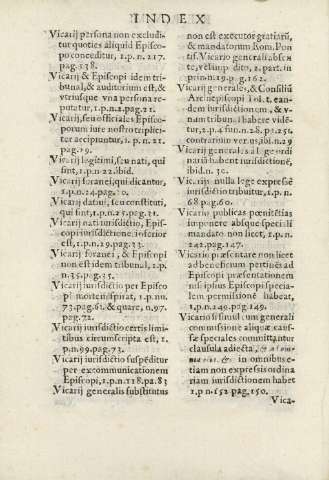 INDEX
Vicarij persona non excludi-
tur quoties aliquid Episco-
po conceditur, 1.p.n.217.
pag.338.
Vicarij & Episcopi idem tri-
bunal, & auditorium est, &
vtriusque vna persona re-
putatur, 1.p.n.21.pag.
Vicarij, seu officiales Episco-
porum iure nostro triplici-
ter accipiuntur, 1. p. n. 21.
pag.29.
Vicarij legitimi, seu nati, qui
sint, 1.p.n.22.ibid.
Vicarij foranei, qui dicantur,
1.p.n.24.pag.
Vicarij dati ui, seu constituti,
qui sint, 1.p.n.25.pag.31.
Vicarij nati iurisdictio, Epis-
copi iurisdictione inferior
est, 1.p.n.29.pag.33.
Vicarij foranei, & Episcopi
non est idem tribunal, 1.p.
n.35.pag.35.
Vicarij iurisdictio per Episco
pi mortem spirat, 1.p.nu.
73.pag.61.& quare, n.97
pag.72.
Vicarij iurisdictio certis limi-
tibus circumscripta est, 1.
p.n.99.pag.73.
Vicarij iurisdictio suspẽditur
per excommunicationem
Episcopi, 1.p.n.118.pa.83
Vicarij generalis substitutus
non est executor gratiarũ,
& mandatorum Rom. Pon
tif. Vicario generali absen
te, vel impedito, 2. part. in
prin.n.19.pag.162.
Vicarij generales, & Consiliũ
Archiepiscopi Tolet. ean-
dem iurisdictionem, & v-
num tribunal habere vidẽ-
tur, 2.p.4 fun.n.28.pa.251.
contrarium ver us, ibi.n.29
Vicarij generales al. geordi-
nariã habent iurisdictionẽ,
ibid.n.30.
Vicarijs nulla lege expressẽ
iurisdictio tribuitur, 1.p.n.
68.pag.60.
Vicario publicas pœnitẽtias
imponere absque speciali
mandato non licet, 1.p.n.
242.pag.147.
Vicario præsentare non licet
ad beneficium pertinẽs ad
Episcopi præsentationem
nisi ipsius Episcopi specia-
lem permissionẽ habeat,
1.p.n.249.pag.149.
Vicario si simul cum generali
commissione aliquæ cau-
sæ speciales committantur
clausula adiecta, &
& in omnibus e-
tiam non expressis ordina
riam iurisdictionem habet
1.p n.252.pag.150.
Vica-